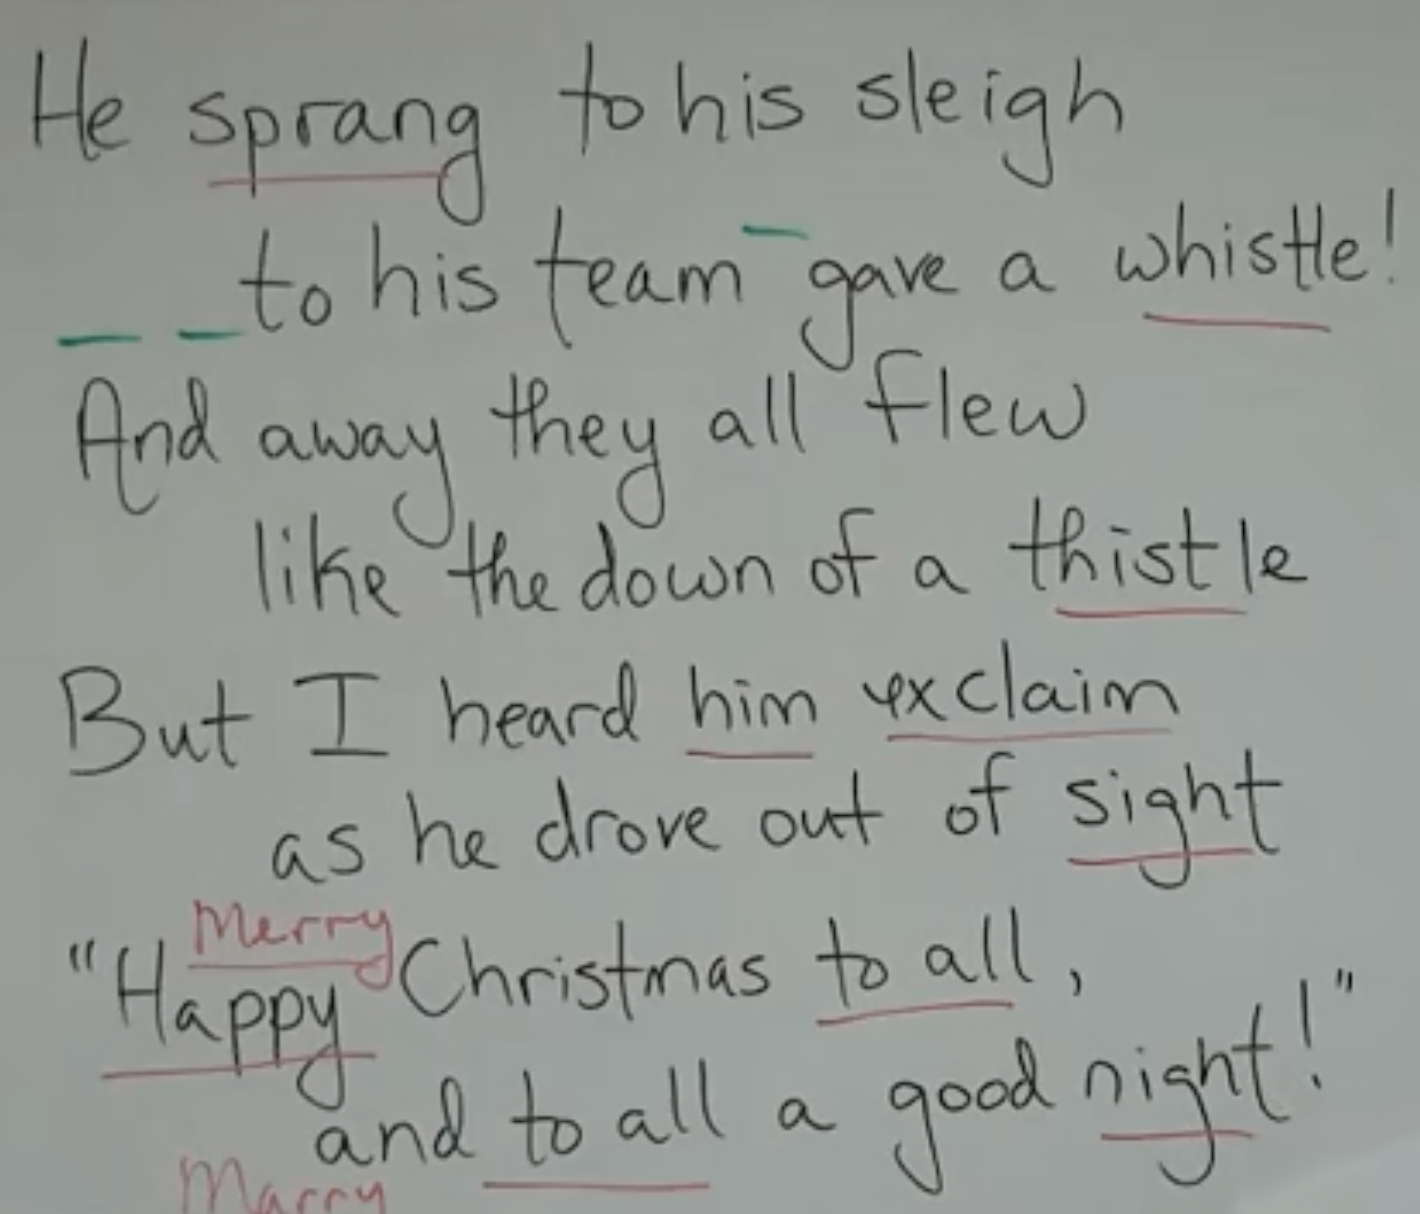 He sprang to his sleigh
to his team gave a whistle!
And away they all flew
like the down of a thistle
But I heard him exclaim
as he drove out of sight
Merry
"Happy Christmas to all,
and to all a good night!"
Marry